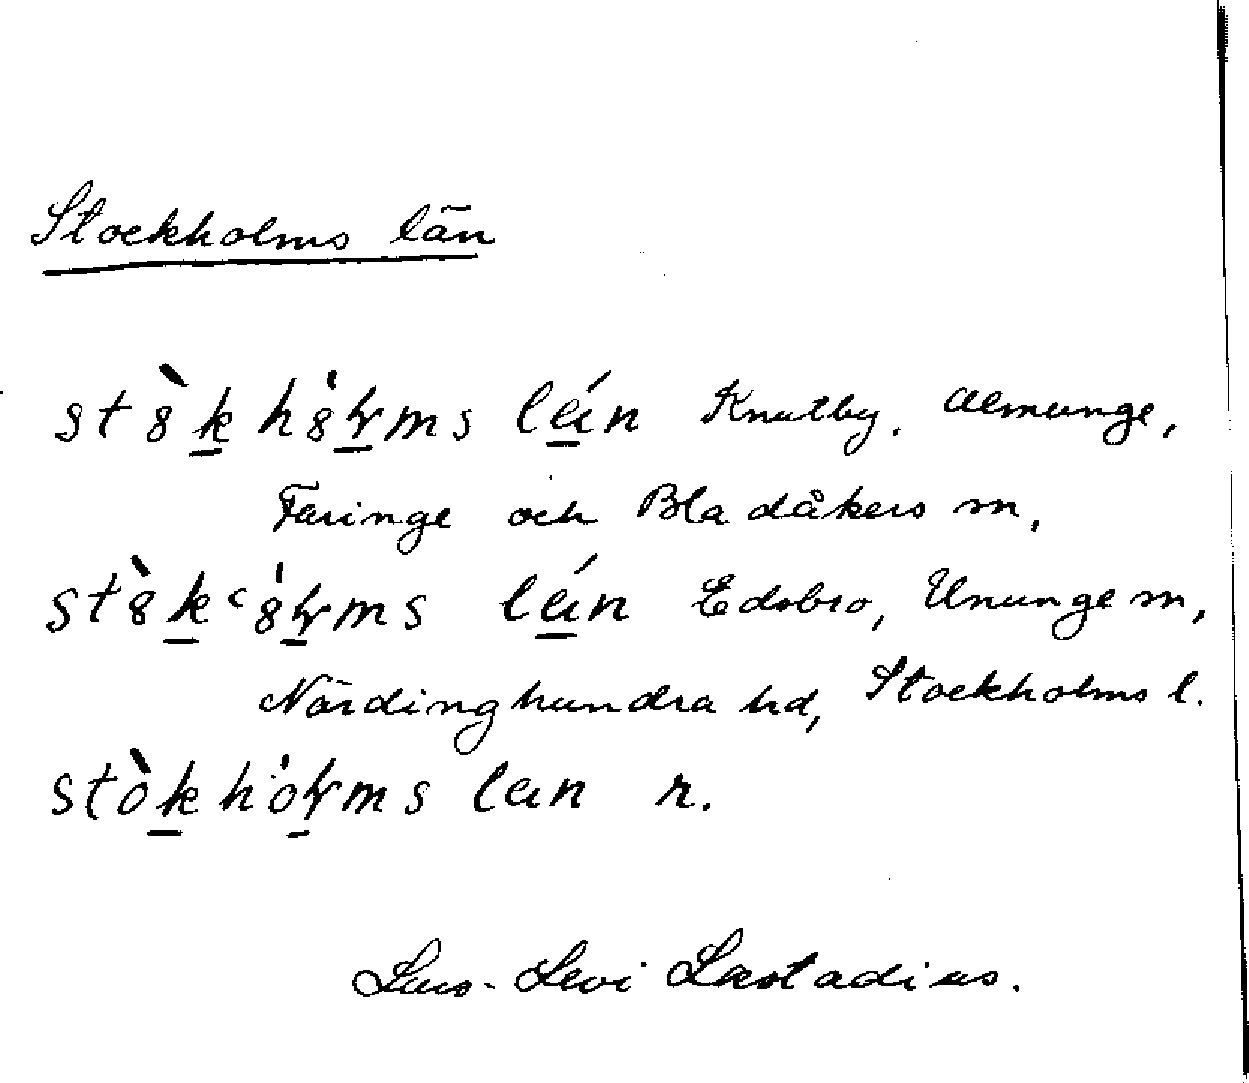 Stockholms län
st8̀k h8́lms lǽn Knutby, Almunge,
Faringe och Bladåkers sn,
st8̀k ʿ8́lms lǽn Edsbro, Ununge sn,
Närdinghundra hd, Stockholms l.
stòk hólms læn r.
Lars-Levi Læstadius.